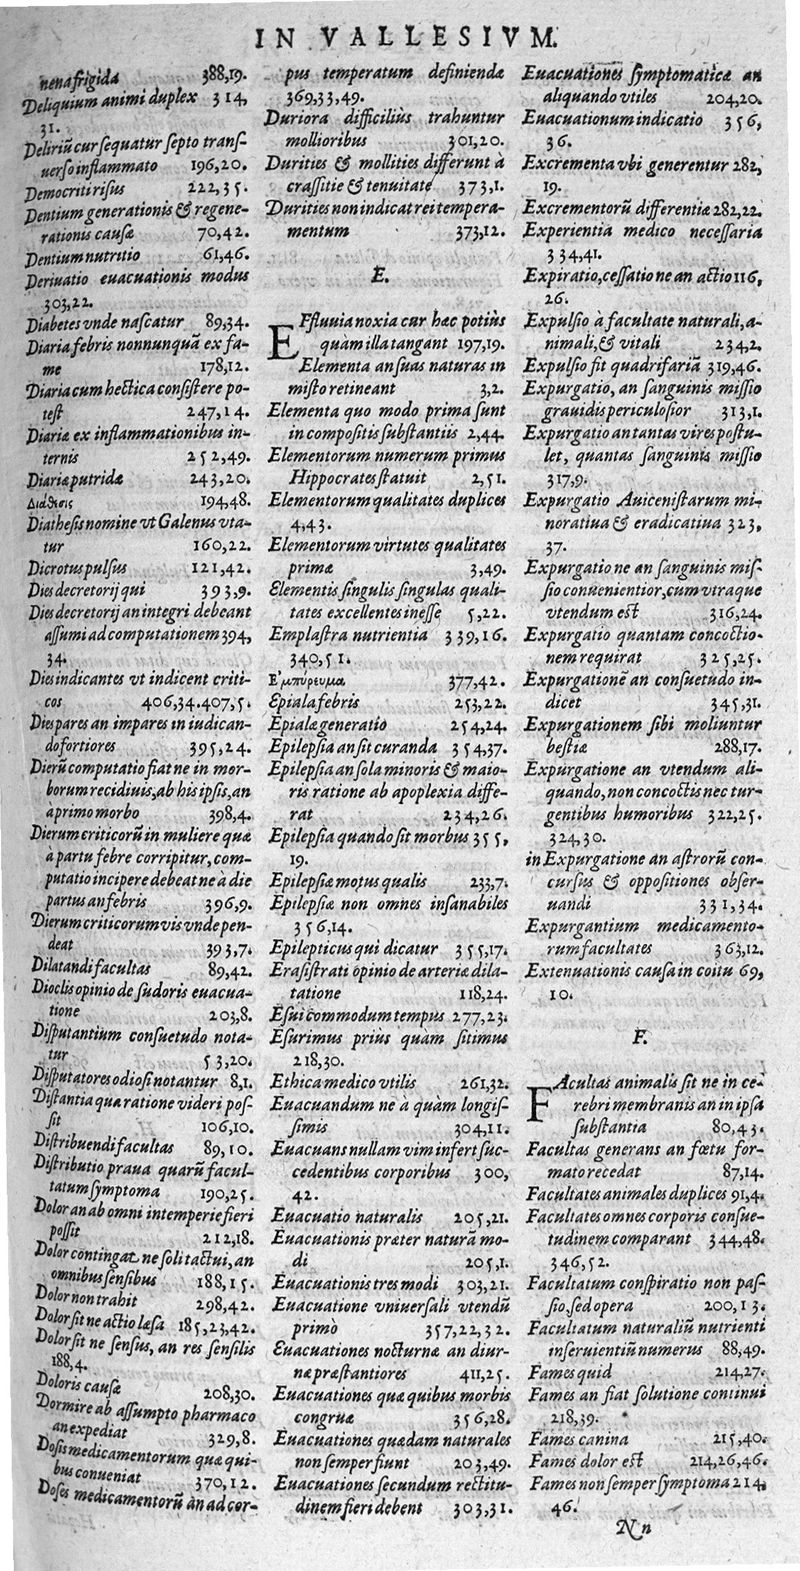 IN VALLESIVM.
nena frigida 388,19.
Deliquium animi duplex 314,
31.
Deliriũ cur sequatur septo trans-
uerso inflammato 196,20.
Democriti risus 222,35.
Dentium generationis & regene-
rationis causæ 70,42.
Dentium nutritio 61,46.
Deriuatio euacuationis modus
303,22.
Diabetes vnde nascatur 89,34.
Diaria febris nonnunquã ex fa-
me 178,12.
Diaria cum hectica consistere po-
test 247,14.
Diariæ ex inflammationibus in-
ternis 252,49.
Diariæ putridæ 243,20.
Διάθεσις 194,48.
Diathesis nomine vt Galenus vta-
tur 160,22.
Dicrotus pulsus 121,42.
Dies decretorij qui 393,9.
Dies decretorij an integri debeant
assumi ad computationem 394,
34.
Dies indicantes vt indicent criti-
cos 406,34.407,5.
Dies pares an impares in iudican-
do fortiores 395,24.
Dierũ computatio fiat ne in mor-
borum recidiuis, ab his ipsis, an
à primo morbo 398,4.
Dierum criticorũ in muliere quæ
à partu febre corripitur, com-
putatio incipere debeat ne à die
partus an febris 396,9.
Dierum criticorum vis vnde pen-
deat 393,7.
Dilatandi facultas 89,42.
Dioclis opinio de sudoris euacua-
tione 203,8.
Disputantium consuetudo nota-
tur 53,20.
Disputatores odiosi notantur 8,1.
Distantia qua ratione videri pos-
sit 106,10.
Distribuendi facultas 89,10.
Distributio praua quarũ facul-
tatum symptoma 190,25.
Dolor an ab omni intemperie fieri
possit 212,18.
Dolor contingat ne soli tactui, an
omnibus sensibus 188,15.
Dolor non trahit 298,42.
Dolor sit ne actio læsa 185,23,42.
Dolor sit ne sensus, an res sensilis
188,4.
Doloris causæ 208,30.
Dormire ab assumpto pharmaco
an expediat 329,8.
Dosis medicamentorum quæ qui-
bus conueniat 370,12.
Doses medicamentorũ àn ad cor-
pus temperatum definiendæ
369,33,49.
Duriora difficiliùs trahuntur
mollioribus 301,20.
Durities & mollities differunt à
crassitie & tenuitate 373,1.
Durities non indicat rei tempera-
mentum 373,12.
E.
EFfluuia noxia cur hæc potiùs
quàm illa tangant 197,19.
Elementa an suas naturas in
misto retineant 3,2.
Elementa quo modo prima sunt
in compositis substantiis 2,44.
Elementorum numerum primus
Hippocrates statuit 2,51.
Elementorum qualitates duplices
4,43.
Elementorum virtutes qualitates
primæ 3,49.
Elementis singulis singulas quali-
tates excellentes inesse 5,22.
Emplastra nutrientia 339,16.
340,51.
Ε'μπύρευμα 377,42.
Epiala febris 253,22.
Epialæ generatio 254,24.
Epilepsia an sit curanda 354,37.
Epilepsia an sola minoris & maio-
ris ratione ab apoplexia diffe-
rat 234,26.
Epilepsia quando sit morbus 355,
19.
Epilepsiæ motus qualis 233,7.
Epilepsiæ non omnes insanabiles
356,14.
Epilepticus qui dicatur 355,17.
Erasistrati opinio de arteriæ dila-
tatione 118,24.
Esui commodum tempus 277,23.
Esurimus priùs quam sitimus
218,30.
Ethica medico vtilis 261,32.
Euacuandum ne à quàm longis-
simis 304,11.
Euacuans nullam vim infert suc-
cedentibus corporibus 300,
42.
Euacuatio naturalis 205,21.
Euacuationis præter naturã mo-
di 205,1.
Euacuationis tres modi 303,21.
Euacuatione vniuersali vtendũ
primò 357,22,32.
Euacuationes nocturnæ an diur-
næ præstantiores 411,25.
Euacuationes quæ quibus morbis
congruæ 356,28.
Euacuationes quædam naturales
non semper fiunt 203,49.
Euacuationes secundum rectitu-
dinem fieri debent 303,31.
Euacuationes symptomaticæ an
aliquando vtiles 204,20.
Euacuationum indicatio 356,
36.
Excrementa vbi generentur 282,
19.
Excrementorũ differentiæ 282,22.
Experientia medico necessaria
334,41.
Expiratio, cessatio ne an actio 116,
26.
Expulsio à facultate naturali, a-
nimali, & vitali 234,2.
Expulsio fit quadrifariã 319,46.
Expurgatio, an sanguinis missio
grauidis periculosior 313,1.
Expurgatio an tantas vires postu-
let, quantas sanguinis missio
317,9.
Expurgatio Auicenistarum mi-
noratiua & eradicatiua 323,
37.
Expurgatio ne an sanguinis mis-
sio conuenientior, cum vtraque
vtendum est 316,24.
Expurgatio quantam concoctio-
nem requirat 325,25.
Expurgationẽ an consuetudo in-
dicet 345,31.
Expurgationem sibi moliuntur
bestiæ 288,17.
Expurgatione an vtendum ali-
quando, non concoctis nec tur-
gentibus humoribus 322,25.
324,30.
in Expurgatione an astrorũ con-
cursus & oppositiones obser-
uandi 331,34.
Expurgantium medicamento-
rum facultates 363,12.
Extenuationis causa in coitu 69,
10.
F.
FAcultas animalis sit ne in ce-
rebri membranis an in ipsa
substantia 80,43.
Facultas generans an fœtu for-
mato recedat 87,14.
Facultates animales duplices 91,4.
Facultates omnes corporis consue-
tudinem comparant 344,48.
346,52.
Facultatum conspiratio non pas-
sio, sed opera 200,13.
Facultatum naturaliũ nutrienti
inseruientiũ numerus 88,49.
Fames quid 214,27.
Fames an fiat solutione continui
218,39.
Fames canina 215,40.
Fames dolor est 214,26,46.
Fames non semper symptoma 214,
46.
Nn